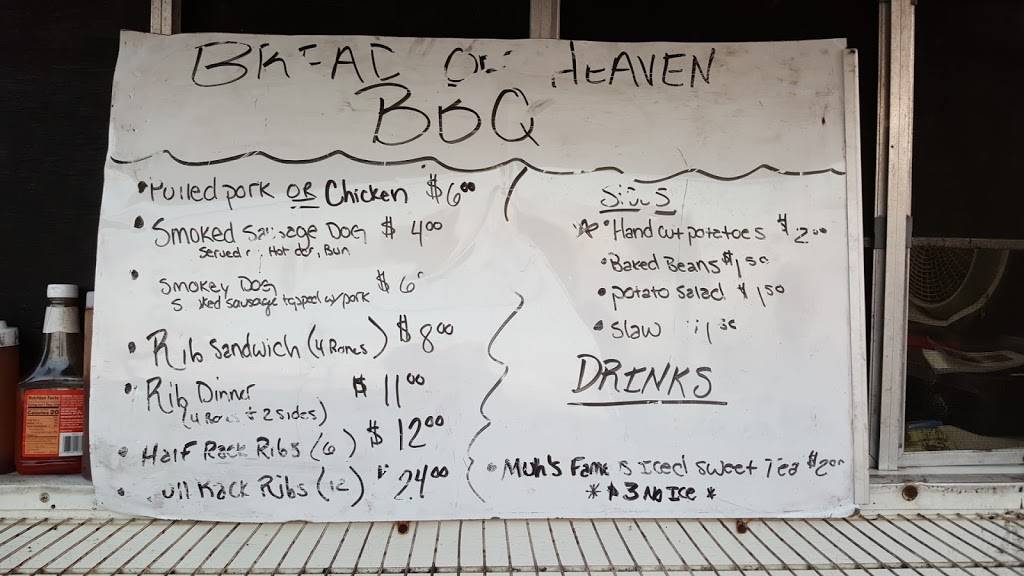 BREAD OF HEAVEN
BBQ
• Pulled pork OR Chicken $6.00
• Smoked Sausage DOG $4.00
Served Hot dog, Bun
• Smokey DOG $6
Smoked sausage topped w/pork
• Rib Sandwich (4 Bones) $8.00
• Rib Dinner $11.00
(4 Bones + 2 sides)
• Half Rack Ribs (6) $12.00
• Full Rack Ribs (12) $24.00
Sides
* Hand cut potatoes $2.00
• Baked Beans $1.50
• potato salad $1.50
• slaw
DRINKS
• Muh's Famous Iced Sweet Tea $2.00
* $3 No ICE *
Calories 20